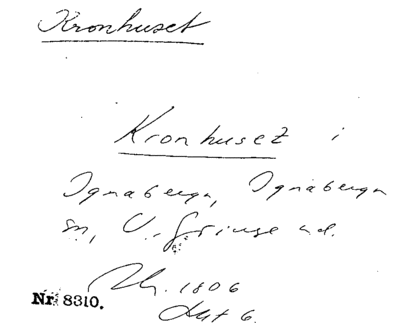 Kronhuset
Kronhuset i
Ignaberga, Ignaberga
sn, V. Göinge hd.
1806
Akt 6.
Nr 8310.